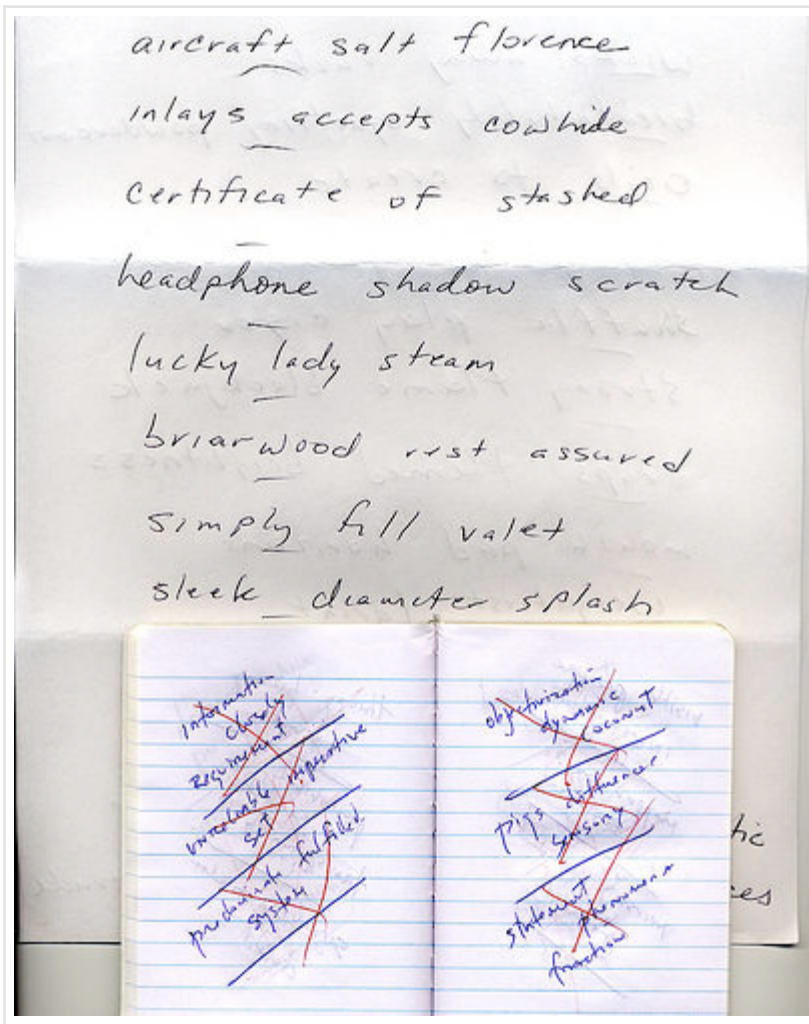 aircraft salt florence
inlays accepts cowhide
certificate of stashed
headphone shadow scratch
lucky lady steam
briarwood rest assured
simply fill valet
sleek diameter splash
information
closely
requirement
unreliable imperative
set
predominate fulfilled
system
objectivization
dynamic
coconut
pigs difference
sensory
statement
phenomena
function
tic
ces